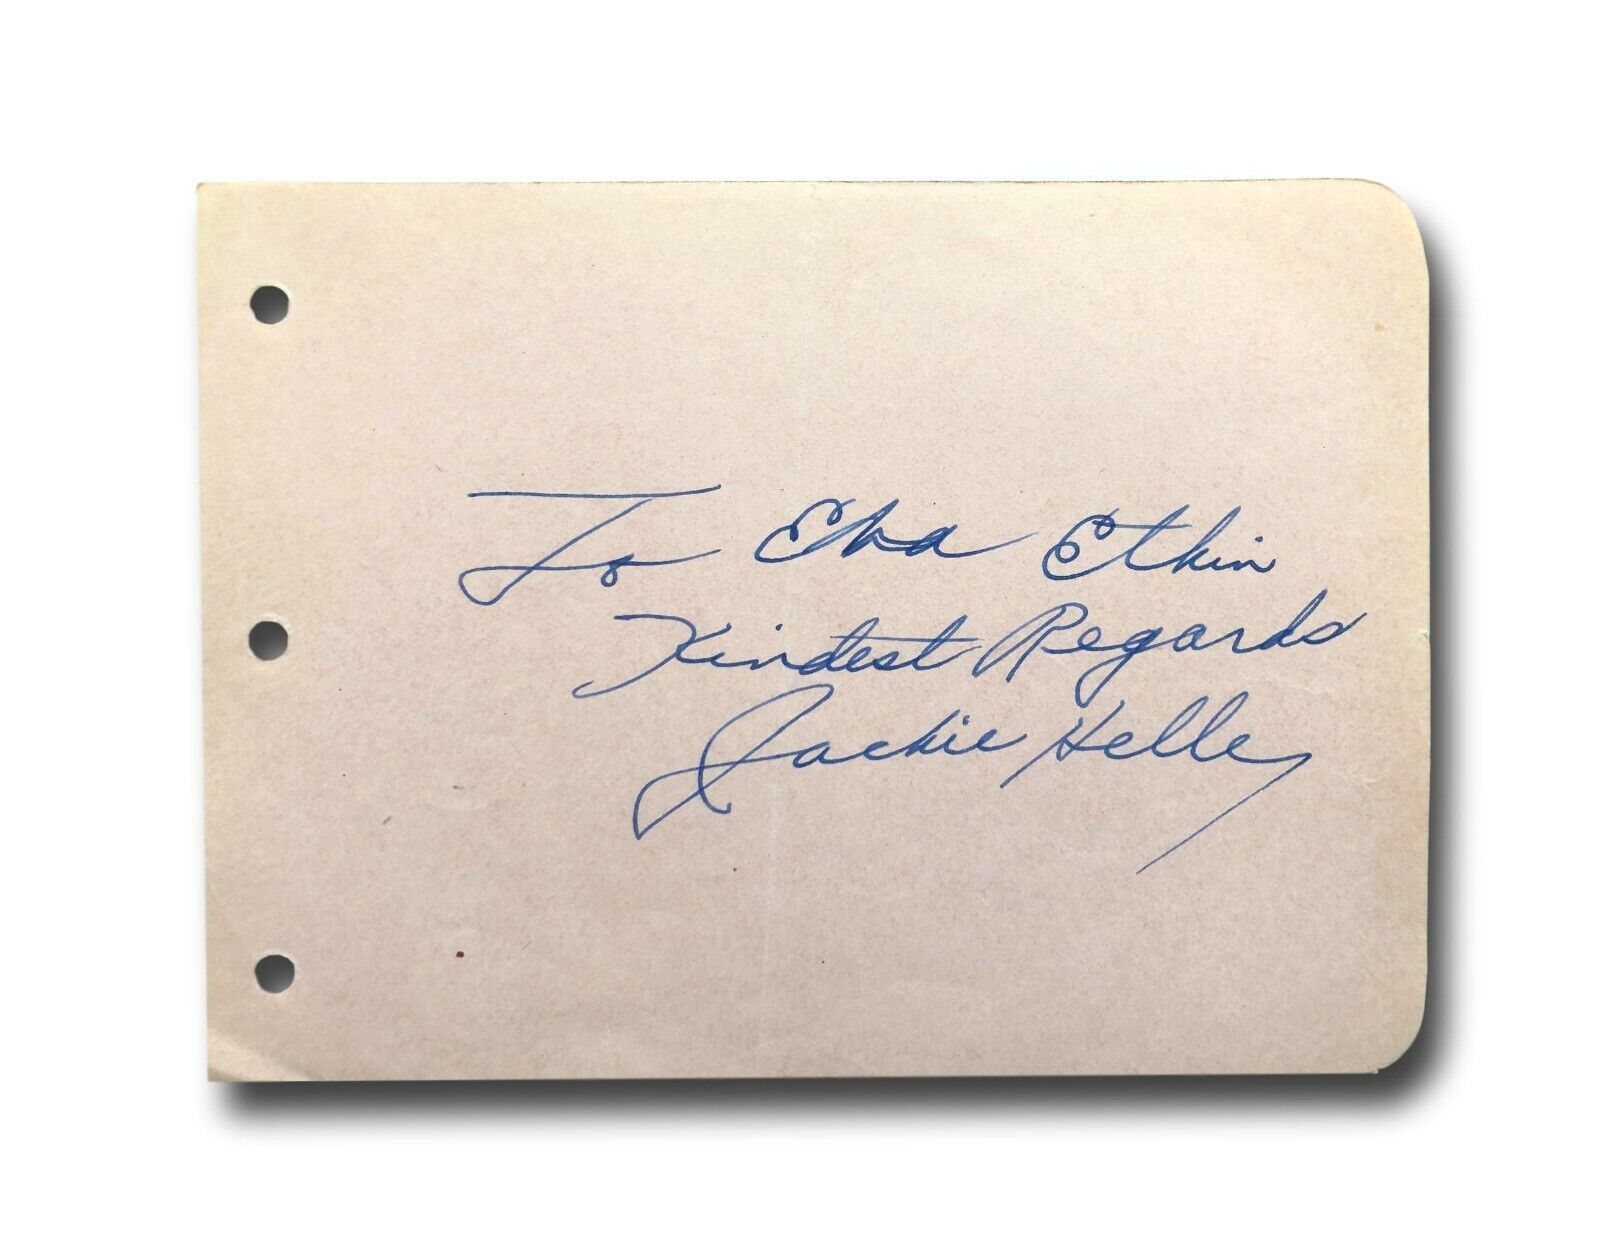 To Etta Etkin
Kindest Regards
Jackie Heller